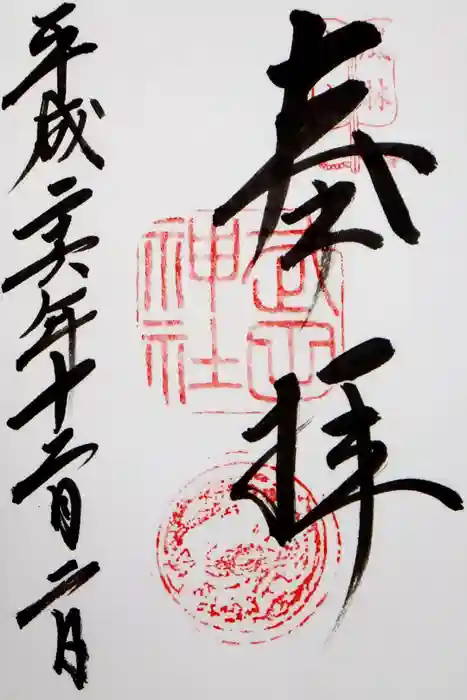 奉拝
武田
神社
平成二十六年十二月二日